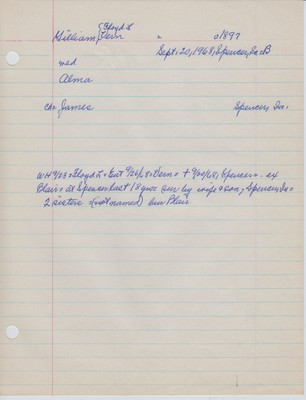 {Lloyd L
William, {Vern " 0/899
Sept. 20, 1968, Spencer, Ia. B
md
Alma
ch: James Spencer, Ia.
WH 9/68 = Lloyd L = Gut 9/26/68 = Vern = + 9/20/68, Spencer = ex
Blair = at Spencer last 18 yrs sur by wife & son, Spencer, Ia =
2 sisters (not named) bur Blair